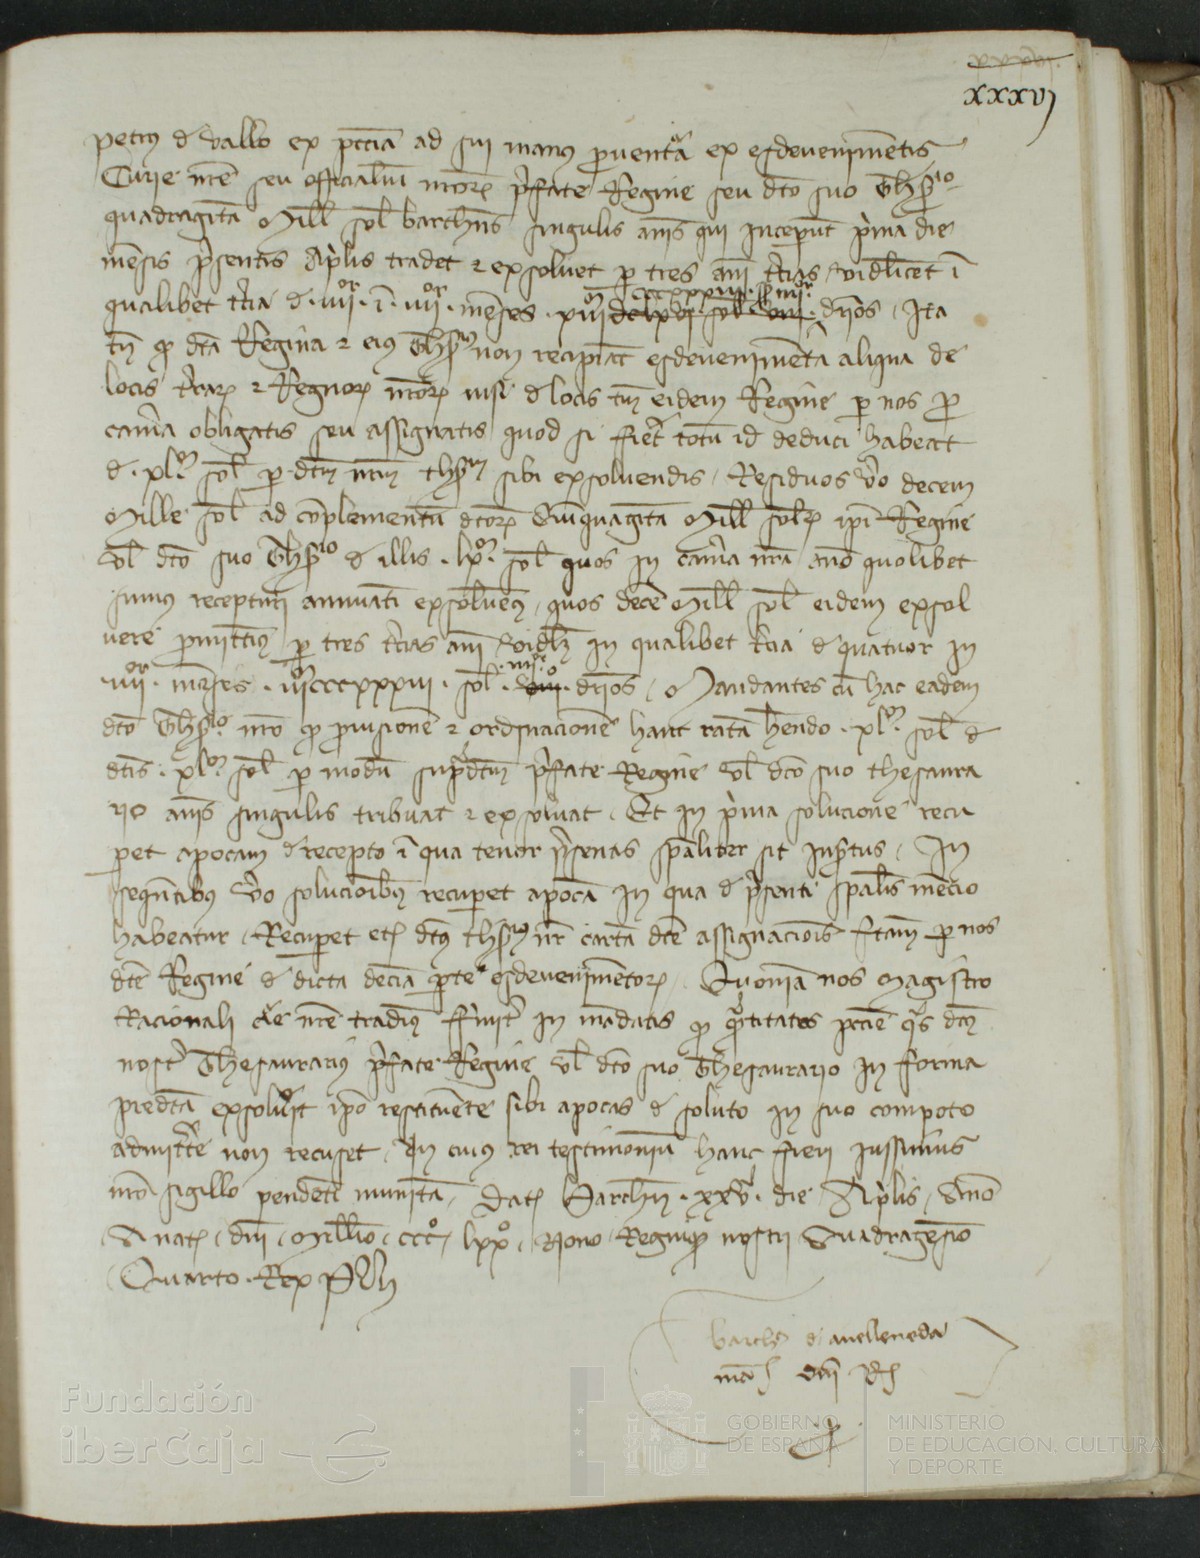 xxxvj
petrus de vallo ex peccunia ad sui manus pervent̃a ex esdevenimẽtis
Curie nr̃e seu officialiũ nr̃orum p̃fate Regine seu dc̃o suo Thesario
quadragĩta Mill sol barchñs singulis anis qui inceperũt p̃ma die
mẽsis p̃sentis Ap̃lis tradet z exsolvet p tres ani t̃cias videlicet ĩ
qualibet t̃cia de .iiii.or ĩ .iiii.or mẽses xiii.m cccxxxiii. sol iiii.or drĩos Ita
tñ q̃ dc̃a Regina z eius Thesius non recipiãt esdevenimẽta aliqua de
locis t̃rarum z Regnorum nr̃orum nisi de locis tñ eidem Regine p nos p
cam̃a obligatis seu assignatis quod si fieret totũ id deduci habeat
de .xl.m sol p dc̃m nr̃m thesm sibi exsolvendis Residuos ṽo decem
Mille sol ad cõplementũ dc̃orum Quinquagĩta Mill solrum ip̃i Regine
vl dc̃o suo Thesrio de illis .lx.m sol quos in cam̃a nr̃a ano quolibet
sumus recepturi annuatĩ exsolvemus quos decẽ Mill sol eidem exsol
vere p̃mittĩus p tres t̃cias ani videlz in qualibet t̃cia de quatuor in
.iiii.or mẽses .iii.m cccxxxiii. sol .iiii.or drĩos Mandantes cũ hac eadem
dc̃o Thesrio nr̃o q̃ p̃visionẽ z ordinacionẽ hanc ratã hẽndo .xl.m sol de
dc̃is .xl.m sol p modũ sup̃dc̃um p̃fate Regine vl dc̃o suo thesaura
rio anis singulis tribuat z exsolvat Et in p̃ma solucione recu
pet apocam de recepto ĩ qua tenor p̃sentis sp̃aliter sit insertus In
sequẽtibus ṽo solucioĩbus recupet apocã in qua de p̃senti sp̃alis mẽcio
habeatur Recupet etc dc̃us thesrius nr̃ cartã dc̃e assignaciõis fc̃am p nos
dc̃e Regine de dicta decĩa p̃te esdevenimẽtorum Quoniã nos Magistro
Racionali Curie nr̃e tradim̃ firmiter in mãdatis q̃ quãtitates pec̃ie quas dc̃us
noster Thesaurarius p̃fate Regine vl dc̃o suo Thesaurario in forma
predc̃a exsolverit ip̃o restituente sibi apocas de soluto in suo compoto
admittere non recuset In cuius rei testimoniũ hanc fieri iussimus
nr̃o sigillo pendẽti munitã Datum Barchñ .xxv. die Ap̃lis Anno
A natte dñi Millio ccc.o lxx.o Nono Regnique nostri Quadragesĩo
Quarto Rex P
barchs de avelleneda
man dñi Rs
p
Fundación
iberCaja
GOBIERNO
DE ESPAÑA
MINISTERIO
DE EDUCACIÓN, CULTURA
Y DEPORTE